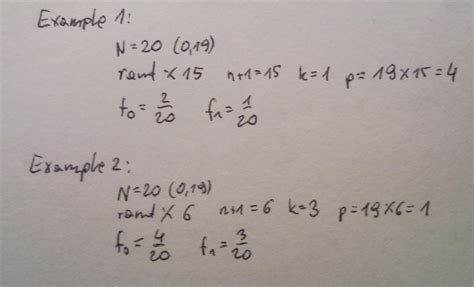 Example 1:
N=20 (0,19)
rand × 15 n+1=15 k=1 p=19×15=4
f₀ = 2/20 f₁ = 1/20
Example 2:
N=20 (0,19)
rand × 6 n+1=6 k=3 p=19×6=1
f₀ = 4/20 f₁ = 3/20